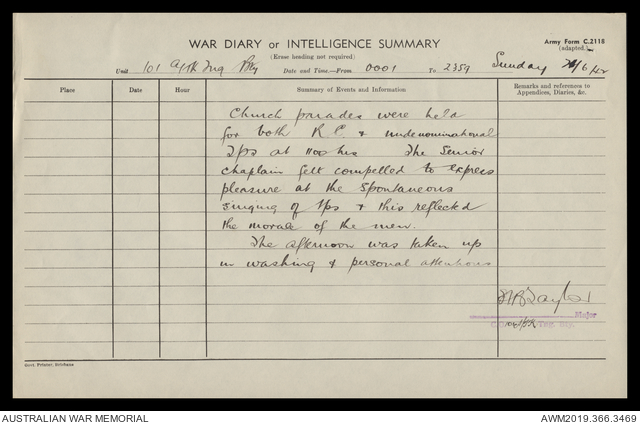 WAR DIARY or INTELLIGENCE SUMMARY
Army Form C.2118
(adapted.)
(Erase heading not required)
Unit 101 A/Tk Trg Bty Date and Time.—From 0001 To 2359 Sunday /6/42
Place Date Hour Summary of Events and Information Remarks and references to Appendices, Diaries, &c.
Church parades were held
for both R.C. & undenominational
Tps at 1100 hrs The Senior
chaplain felt compelled to express
pleasure at the spontaneous
singing of tps & this reflected
the morale of the men.
The afternoon was taken up
in washing & personal attentions
Taylor
Major
C.O. Trg. Bty.
Govt. Printer, Brisbane
AUSTRALIAN WAR MEMORIAL
AWM2019.366.3469